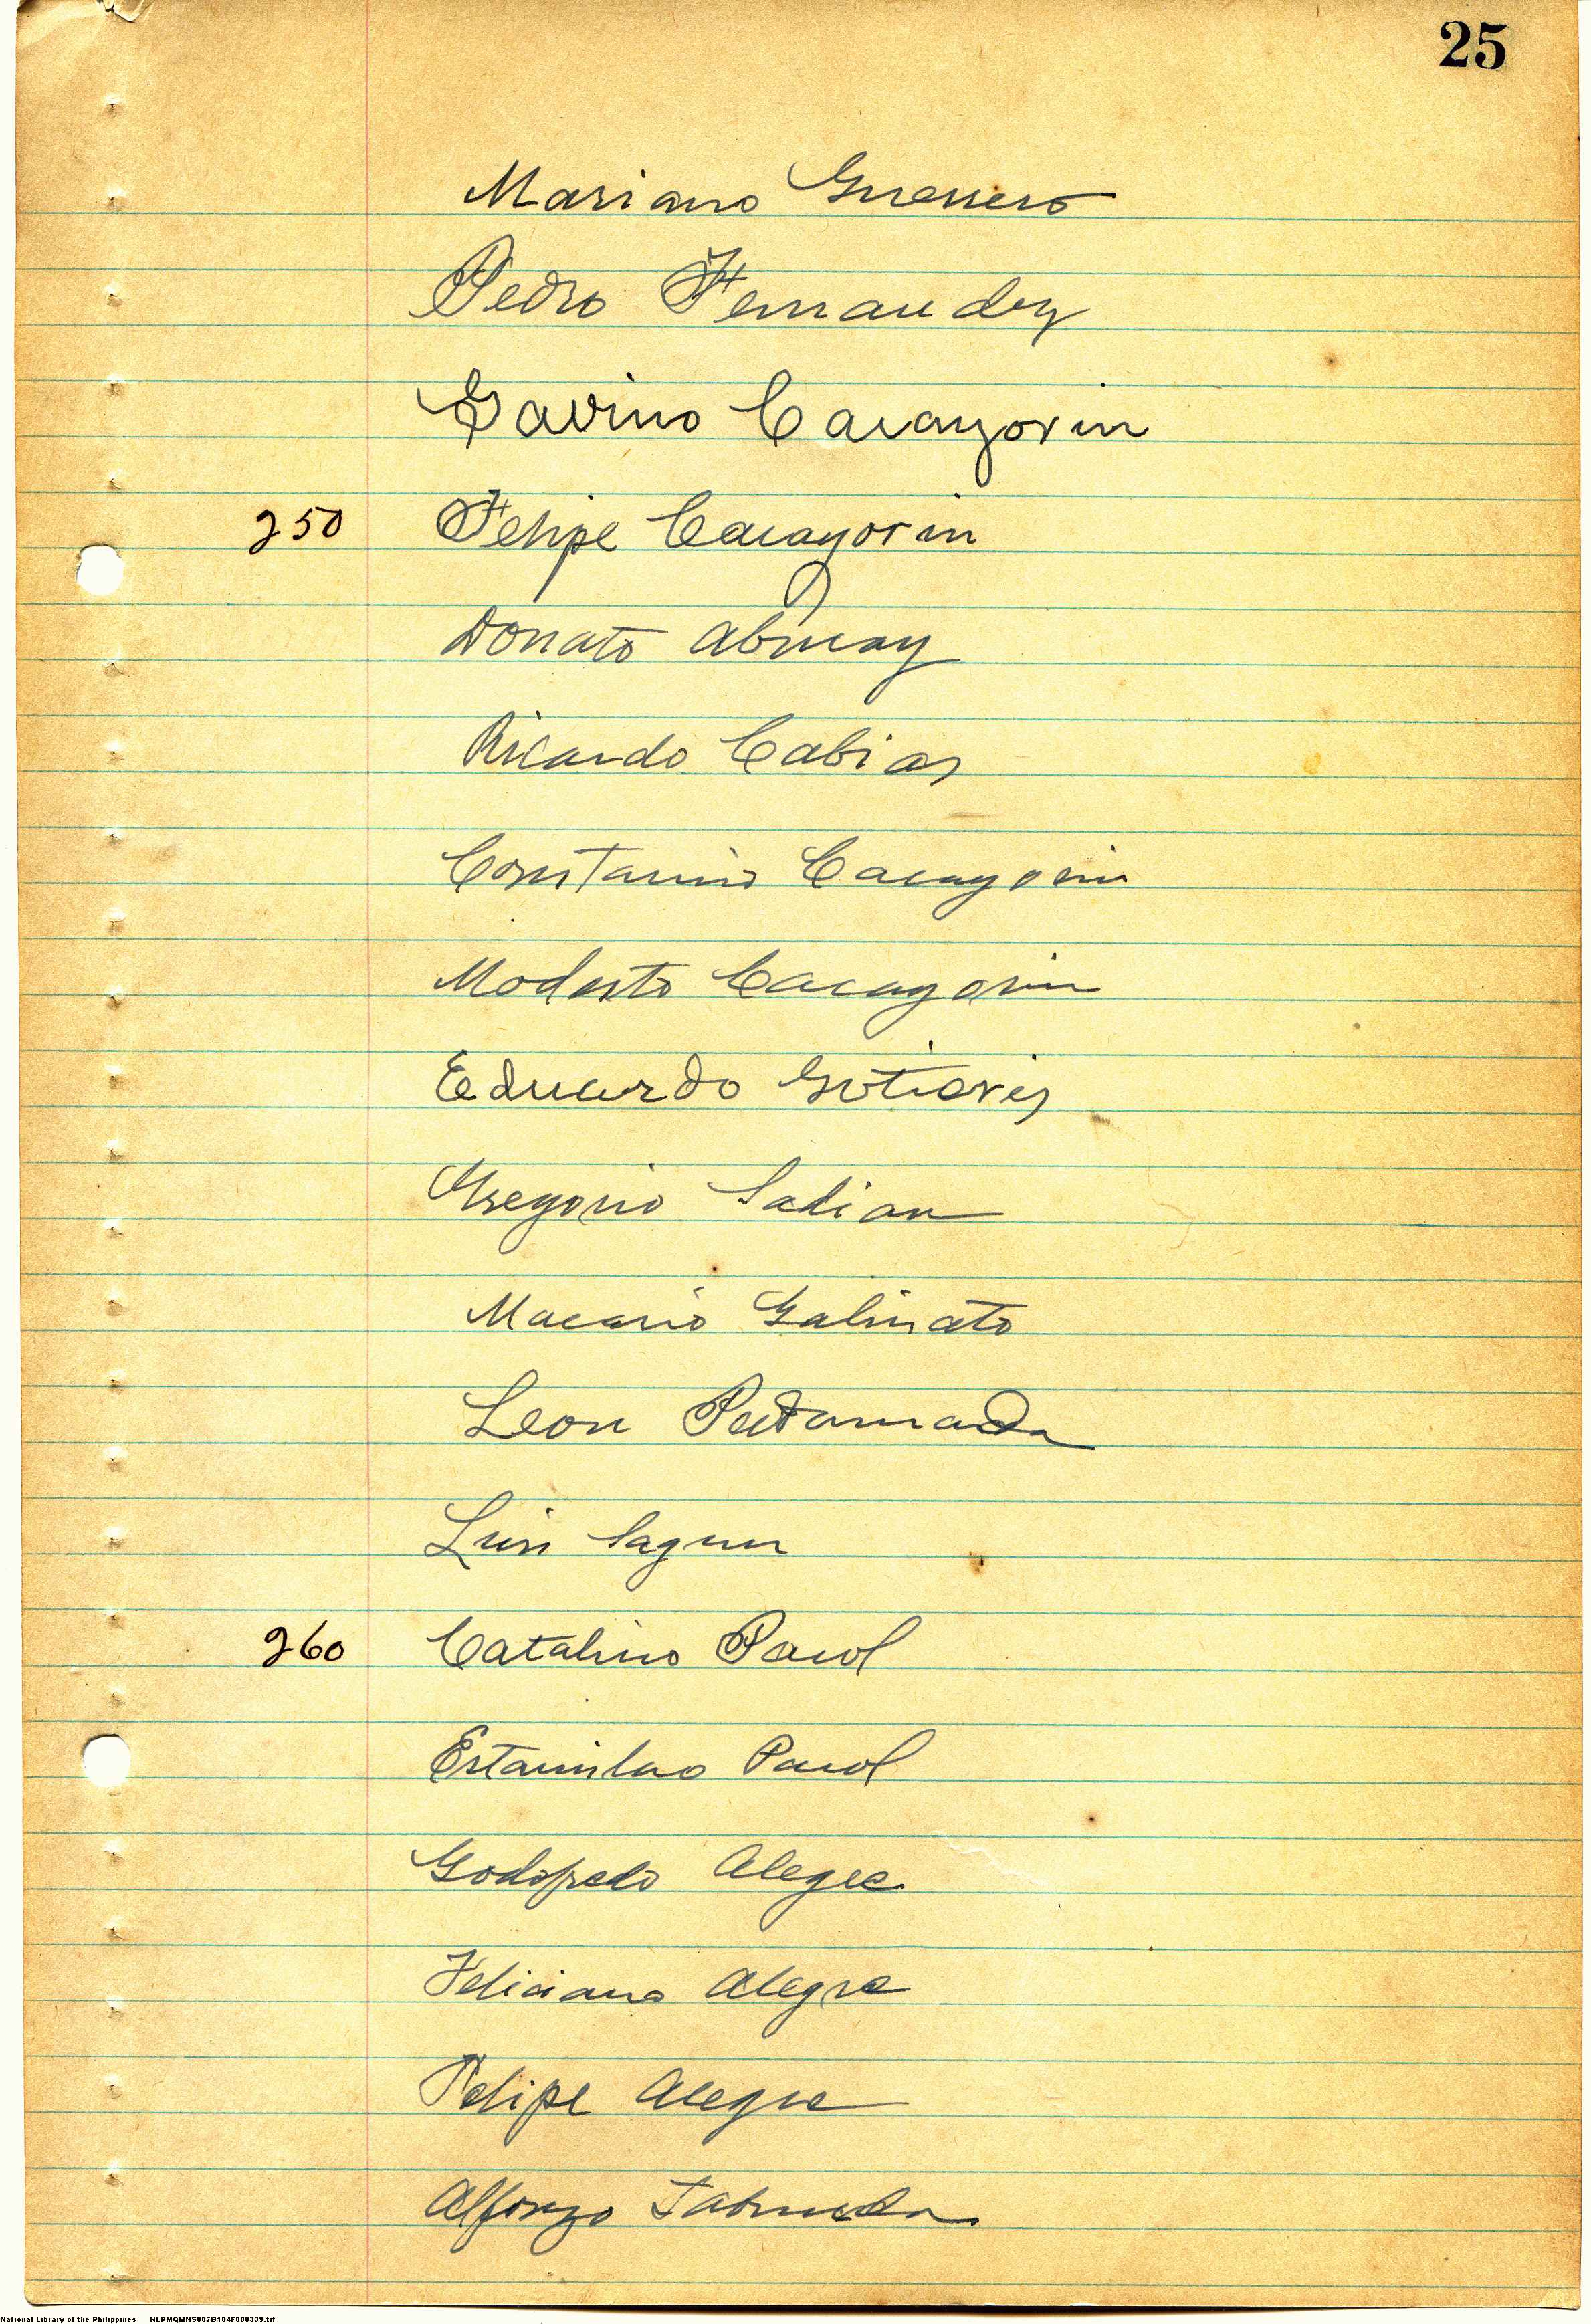 25
Mariano Guerrero
Pedro Fernandez
Gavino Cacayorin
250 Felipe Cacayorin
Donato
Ricardo Cabias
Constanino Cacayorin
Modesto Cacayorin
Eduardo Gutieris
Gregorio Sadian
Macario Galinato
Leon
Luis Sagun
260 Catalino Pascol
Estanislao Pascol
Godofredo Alegre
Feliciano Alegre
Felipe Alegre
Alfonzo
National Library of the Philippines NLPMQMNS007B104F000339.tif